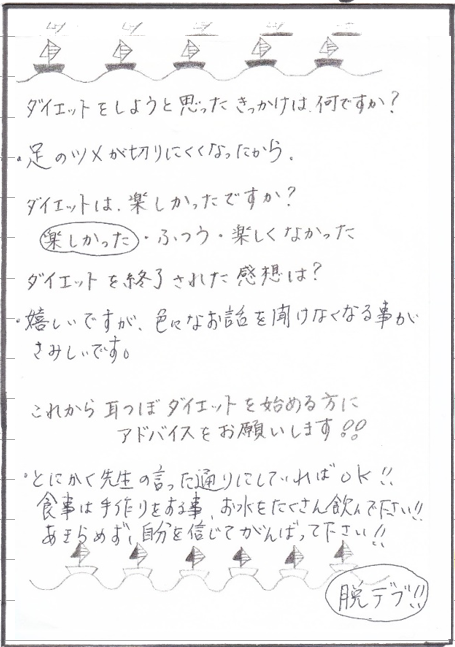 ダイエットをしようと思ったきっかけは、何ですか?
・足のツメが切りにくくなったから。
ダイエットは、楽しかったですか?
楽しかった・ふつう・楽しくなかった
ダイエットを終了された感想は?
・嬉しいですが、色々なお話を聞けなくなる事が
さみしいです。
これから耳つぼダイエットを始める方に
アドバイスをお願いします!!
・とにかく先生の言った通りにしていればOK!!
食事は手作りをする事、お水をたくさん飲んで下さい!!
あきらめず、自分を信じてがんばって下さい!!
脱デブ!!